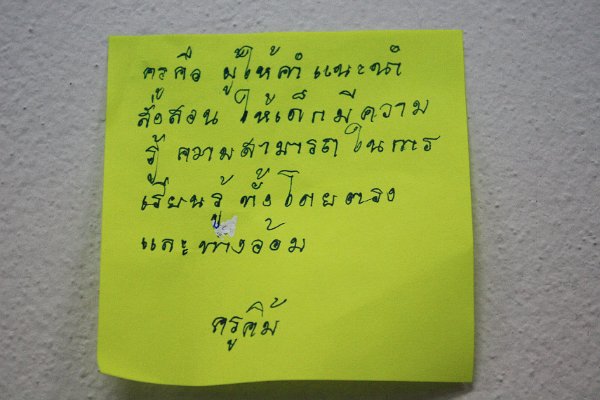 ครูคือ ผู้ให้คำแนะนำ
สั่งสอน ให้เด็กมีความ
รู้ ความสามารถในการ
เรียนรู้ ทั้งโดยตรง
และทางอ้อม
ครูคิ้ม